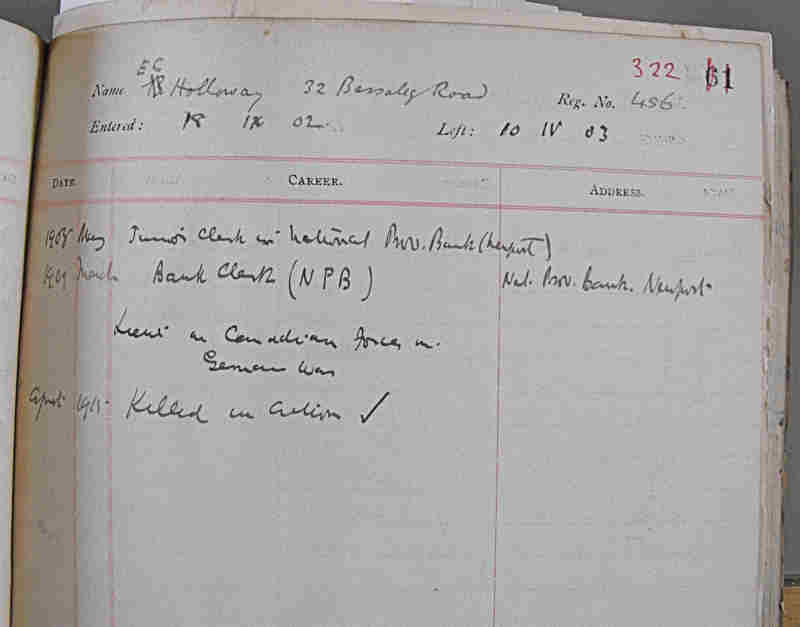 322 61
EC
Name Holloway 32 Bassaleg Road Reg. No. 456
Entered: 18 IX 02 Left: 10 IV 03
DATE. CAREER. ADDRESS.
1908 May Junior Clerk in National Prov. Bank (Newport)
1909 March Bank Clerk (NPB) Nat. Prov. Bank. Newport
Lieut in Canadian Forces in
German War
April 1915 Killed in action ✓